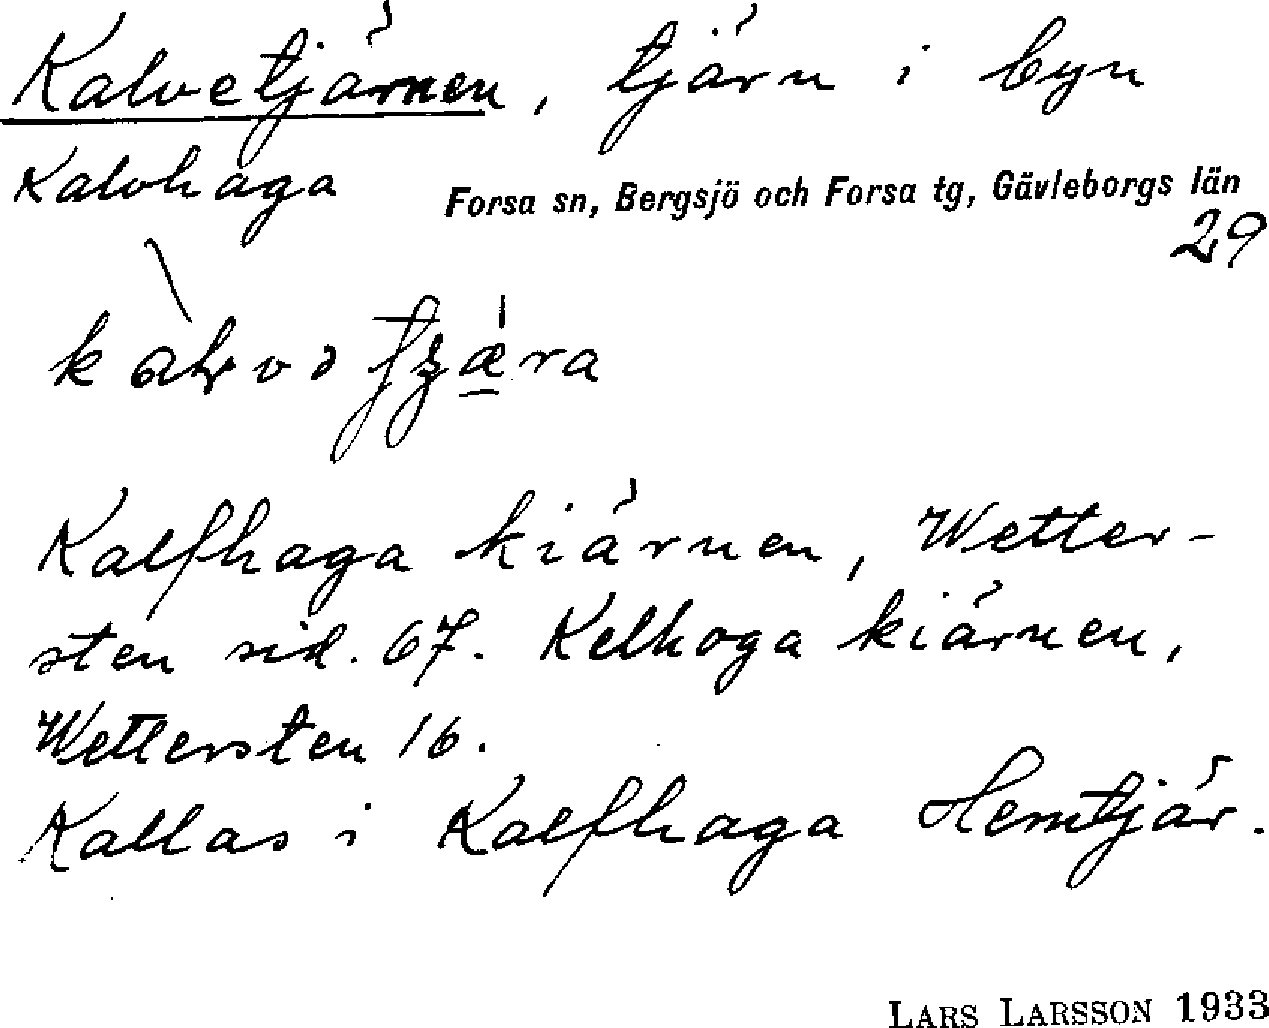 Kalvetjärnen, tjärn i byn
Kalvhaga
Forsa sn, Bergsjö och Forsa tg, Gävleborgs län
29
Kalfhaga kiärnen, Wetter-
sten sid. 67. Kelhoga kiärnen,
Wettersten 16.
Kallas i Kalfhaga Hemtjär.
LARS LARSSON 1933